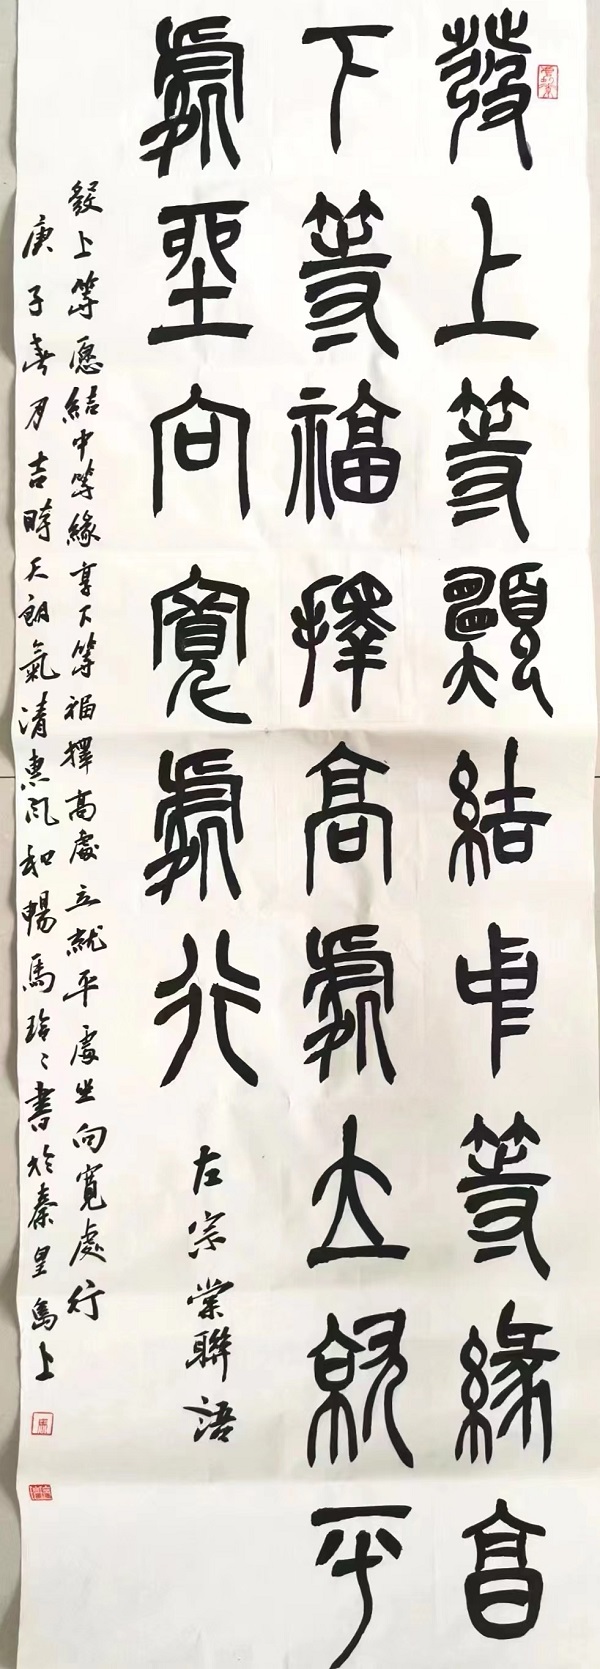 發上等願結中等緣享
下等福擇高處立就平
處坐向寬處行
左宗棠聯語
發上等愿結中等緣享下等福擇高處立就平處坐向寬處行
庚子春月吉時天朗氣清惠风和暢馬玲〻書於秦皇島上